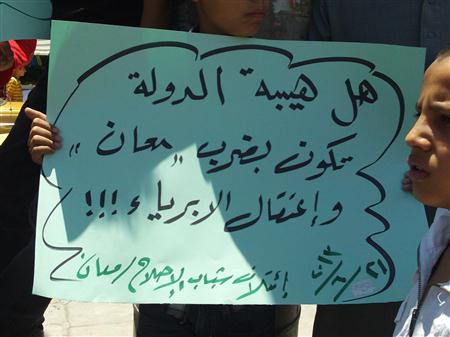 هل هيبة الدولة
تكون بضرب "معان"
وإعتقال الابرياء !!!
إئتلاف شباب الإصلاح / معان